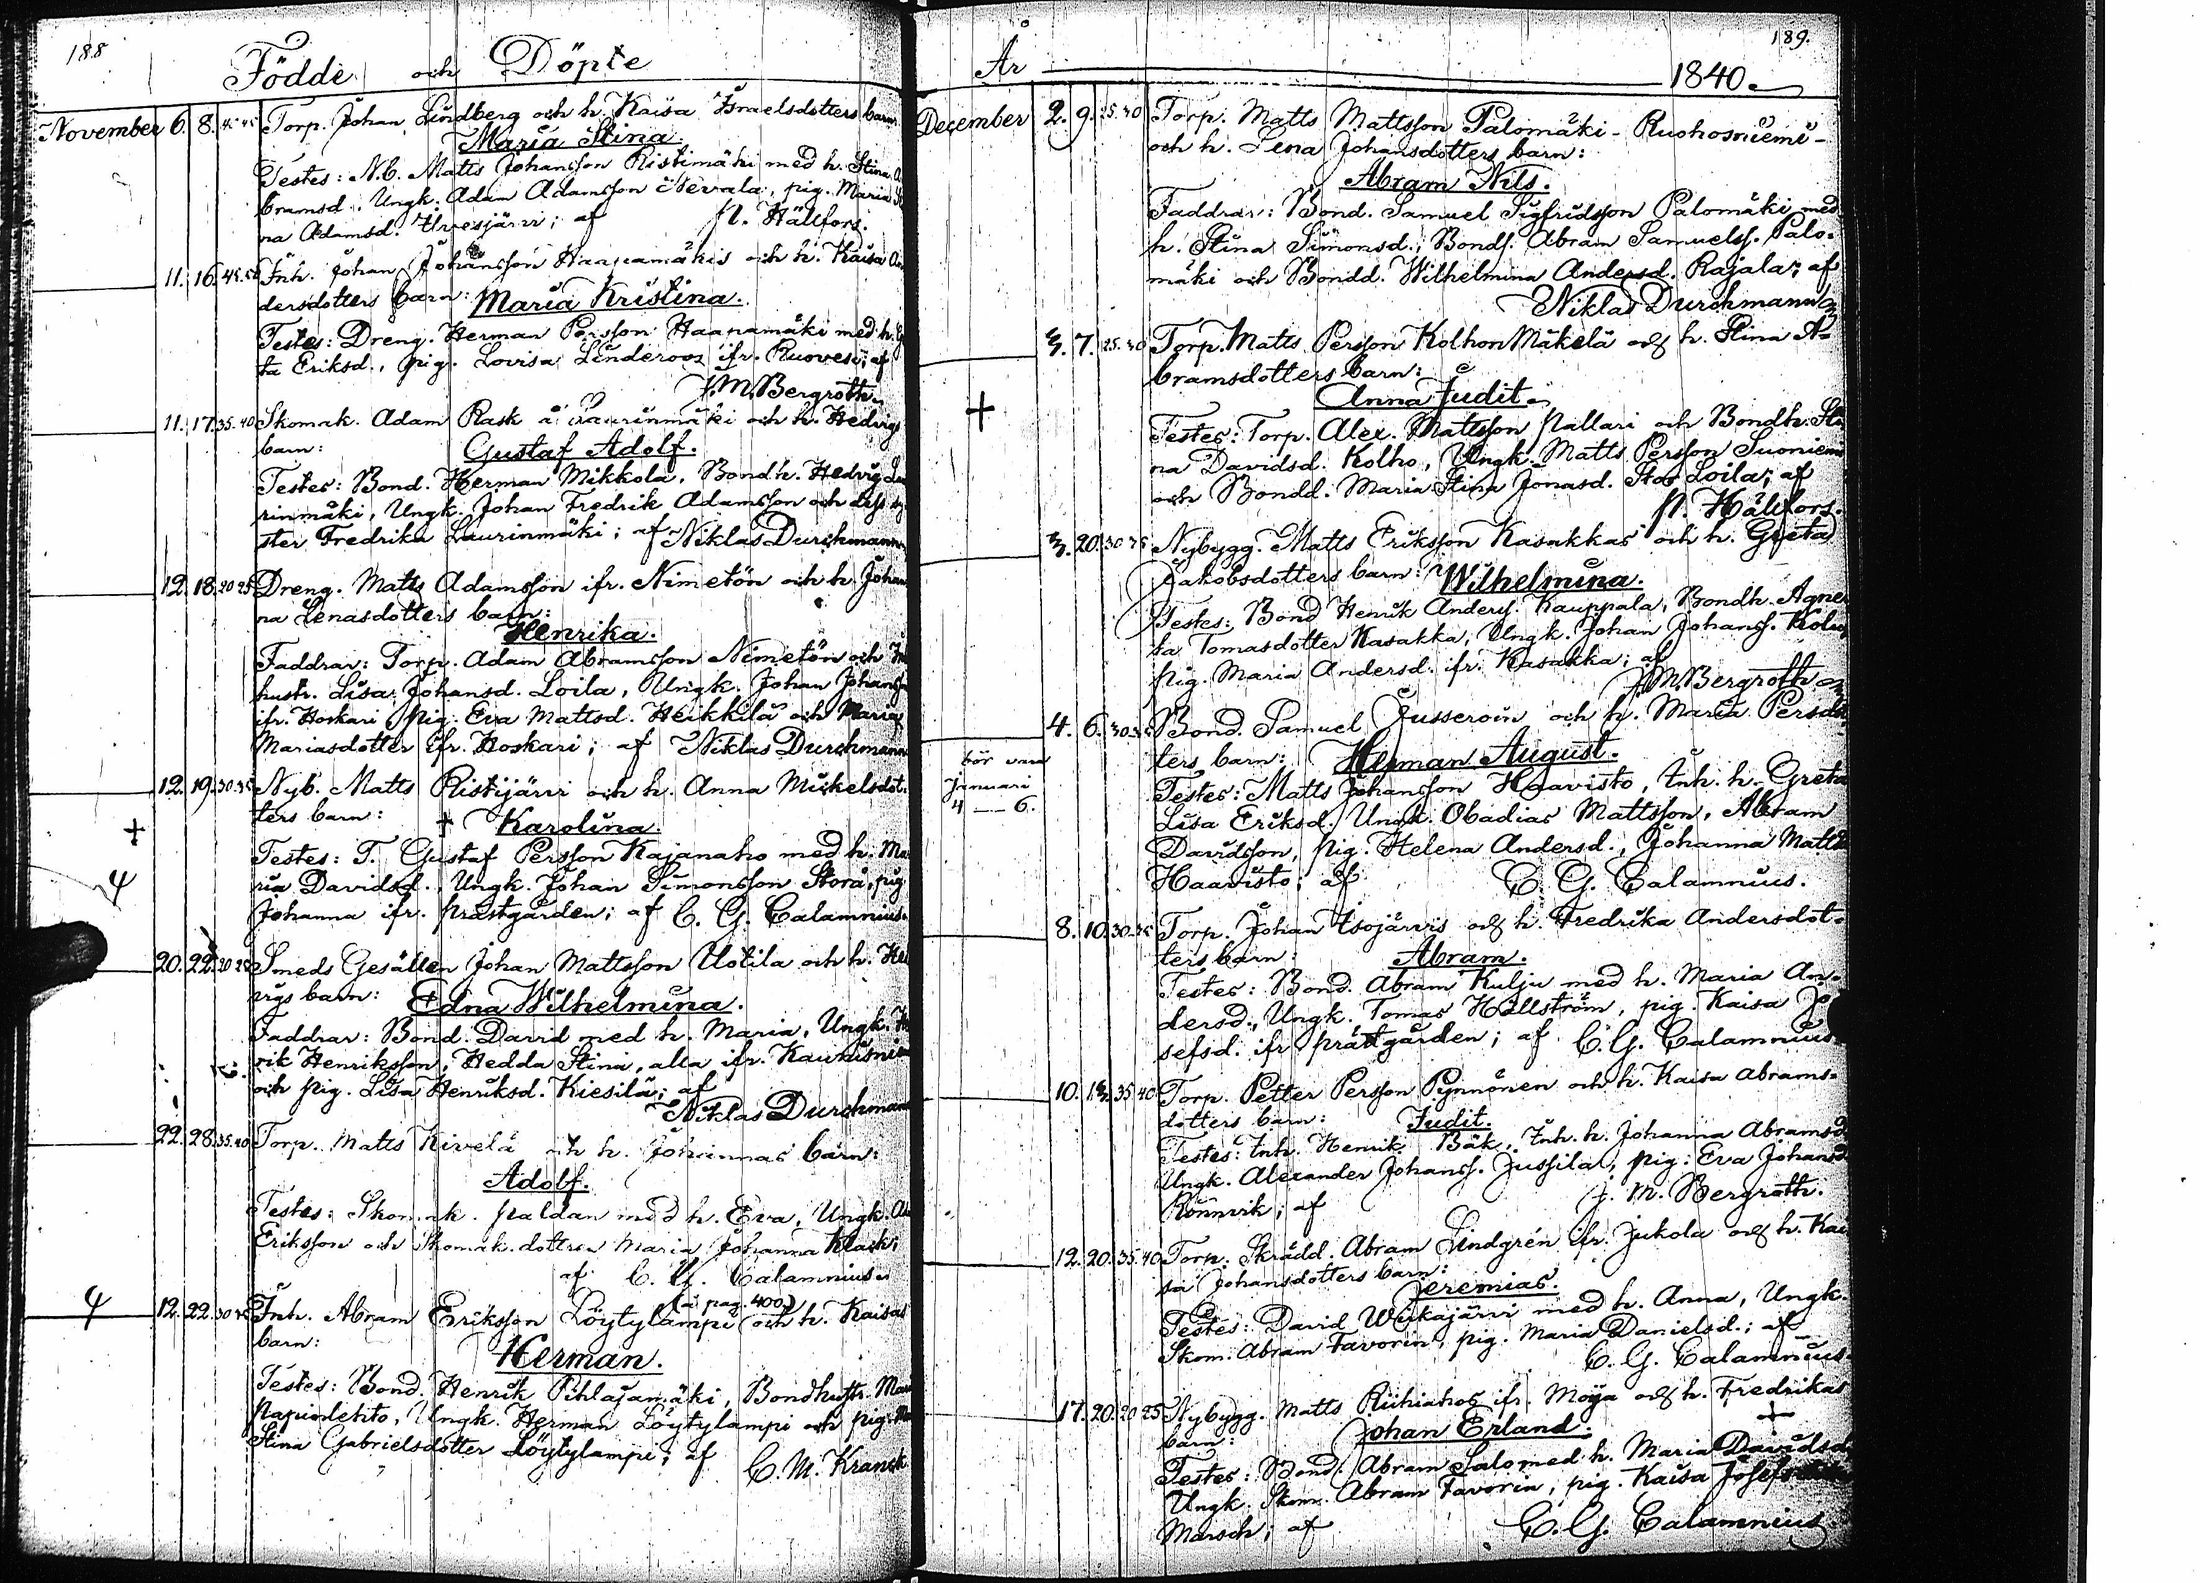 188
Födde och Döpte
November 6. 8. 45 Torp. Johan Lindberg och h. Kaisa Israelsdotters barn
Maria Stina.
Testes: N.b. Matts Johansson Ristimäki med h. Stina A
bramsd. Ungk. Adam Adamsson Nevala, pig. Maria
na Adamsd. Urvesjärvi; af N. Hällfors.
11. 16. 45.50 Inh. Johan Johansson Haapamäkis och h. Kaisa An
dersdotters barn: Maria Kristina.
Testes: Dreng. Herman Persson Haapamäki med h.
ta Eriksd., pig. Lovisa Linderoos ifr. Ruovesi; af
J. M. Bergroth.
11. 17. 35.40 Skomak. Adam Rask å Laurinmäki och h. Hedvigs
barn: Gustaf Adolf.
Testes: Bond. Herman Mikkola, Bondh. Hedvig Lau
rinmäki, Ungk. Johan Fredrik Adamsson och dess sy
ster Fredrika Laurinmäki; af Niklas Durchmann
12. 18. 20 25 Dreng. Matts Adamsson ifr. Nimetön och h. Johan
na Lenasdotters barn:
Henrika.
Faddrar: Torp. Adam Abramsson Nimetön och In
hustr. Lisa Johansd. Loila, Ungk. Johan Johansson
ifr. Hoskari, pig. Eva Mattsd. Heikkilä och Maria
Mariasdotter ifr. Hoskari; af Niklas Durchmann
12. 19. 30.35 Nyb. Matts Ristijärvi och h. Anna Mickelsdot.
ters barn: + Karolina.
+
Testes: T. Gustaf Persson Kajanaho med h. Ma
ria Davidsd., Ungk. Johan Simonsson Storå, pig
Johanna ifr. prästgården; af C. G. Calamnius.
20. 22. 20 25 Smeds Gesällen Johan Mattsson Uotila och h. Hed
vigs barn: Edna Wilhelmina.
Faddrar: Bond. David med h. Maria, Ungk. Hen
rik Henriksson, Hedda Stina, alla ifr.
och pig. Lisa Henriksd. Kiesilä; af
Niklas Durchmann
22. 28. 35.40 Torp. Matts Kivelä och h. Johannas barn:
Adolf.
Testes: Skomak. Paldan med h. Eva, Ungk.
Eriksson och Skomak. dottren Maria Johanna Klack;
af C. G. Calamnius.
(å pag. 400)
12. 22. 30 35 Inh. Abram Eriksson Löytylampi och h. Kaisas
barn:
Herman.
Testes: Bond. Henrik Pihlajamäki, Bondhustr. Mari
Papinlehto, Ungk. Herman Löytylampi och pig.
Stina Gabrielsdotter Löytylampi; af
C. M. Kranck
189.
År 1840.
December 2. 9. 25.30 Torp. Matts Mattsson Palomäki - Ruohosniemi -
och h. Lena Johansdotters barn:
Abram Nils.
Faddrar: Bond. Samuel Sigfridsson Palomäki med
h. Stina Simonsd., Bonds. Abram Samuelss. Palo-
mäki och Bondd. Wilhelmina Andersd. Rajala; af
Niklas Durchmann
3. 7. 25.30 Torp. Matts Persson Kolhon Mäkelä och h. Stina A-
bramsdotters barn:
Anna Judit.
+
Testes: Torp. Alex. Mattsson Pallari och Bondh. Sti
na Davidsd. Kolho, Ungk. Matts Persson Suoniemi
och Bondd. Maria Stina Jonasd. Stor Loila; af
N. Hällfors.
3. 20. 30 35 Nybygg. Matts Eriksson Kasakkas och h. Greta
Jakobsdotters barn: Wilhelmina.
Testes: Bond Henrik Anderss. Kauppala, Bondh. Agne
ta Tomasdotter Kasakka, Ungk. Johan Johanss.
pig. Maria Andersd. ifr. Kasakka; af
J. M. Bergroth
4. 6. 30.35 Bond. Samuel Jusseroin och h. Maria Persdot
ters barn: Herman August.
bör vara
Januari
4 — 6.
Testes: Matts Johansson Haavisto, Inh. h. Greta
Lisa Eriksd. Ungk. Obadias Mattsson, Abram
Davidsson, pig. Helena Andersd., Johanna Mattsd
Haavisto; af C. G. Calamnius.
8. 10. 30.35 Torp. Johan Isojärvis och h. Fredrika Andersdot-
ters barn: Abram.
Testes: Bond. Abram Kulju med h. Maria An-
dersd., Ungk. Tomas Hällström, pig. Kaisa Jo
sefsd. ifr prästgården; af C. G. Calamnius.
10. 13. 35 40 Torp. Petter Persson Pynnönen och h. Kaisa Abrams-
dotters barn: Judit.
Testes: Inh. Henrik Bäk, Inh. h. Johanna Abramsd
Ungk. Alexander Johanss. Jussila, pig. Eva Johansd.
Rönnvik; af J. M. Bergroth.
12. 20. 35.40 Torp. Skrädd. Abram Lindgrén ifr. Jukola och h. Kai
sa Johansdotters barn:
Jeremias.
Testes: David Wiikajärvi med h. Anna, Ungk.
Skom. Abram Favorin, pig. Maria Danielsd.; af
C. G. Calamnius.
17. 20. 20 25 Nybygg. Matts Riihiahos ifr. Moija och h. Fredrikas
barn: Johan Erland. +
Testes: Bond. Abram Salo med h. Maria Davidsd
Ungk. Skom. Abram Favorin, pig. Kaisa Josefs
Marsch; af C. G. Calamnius